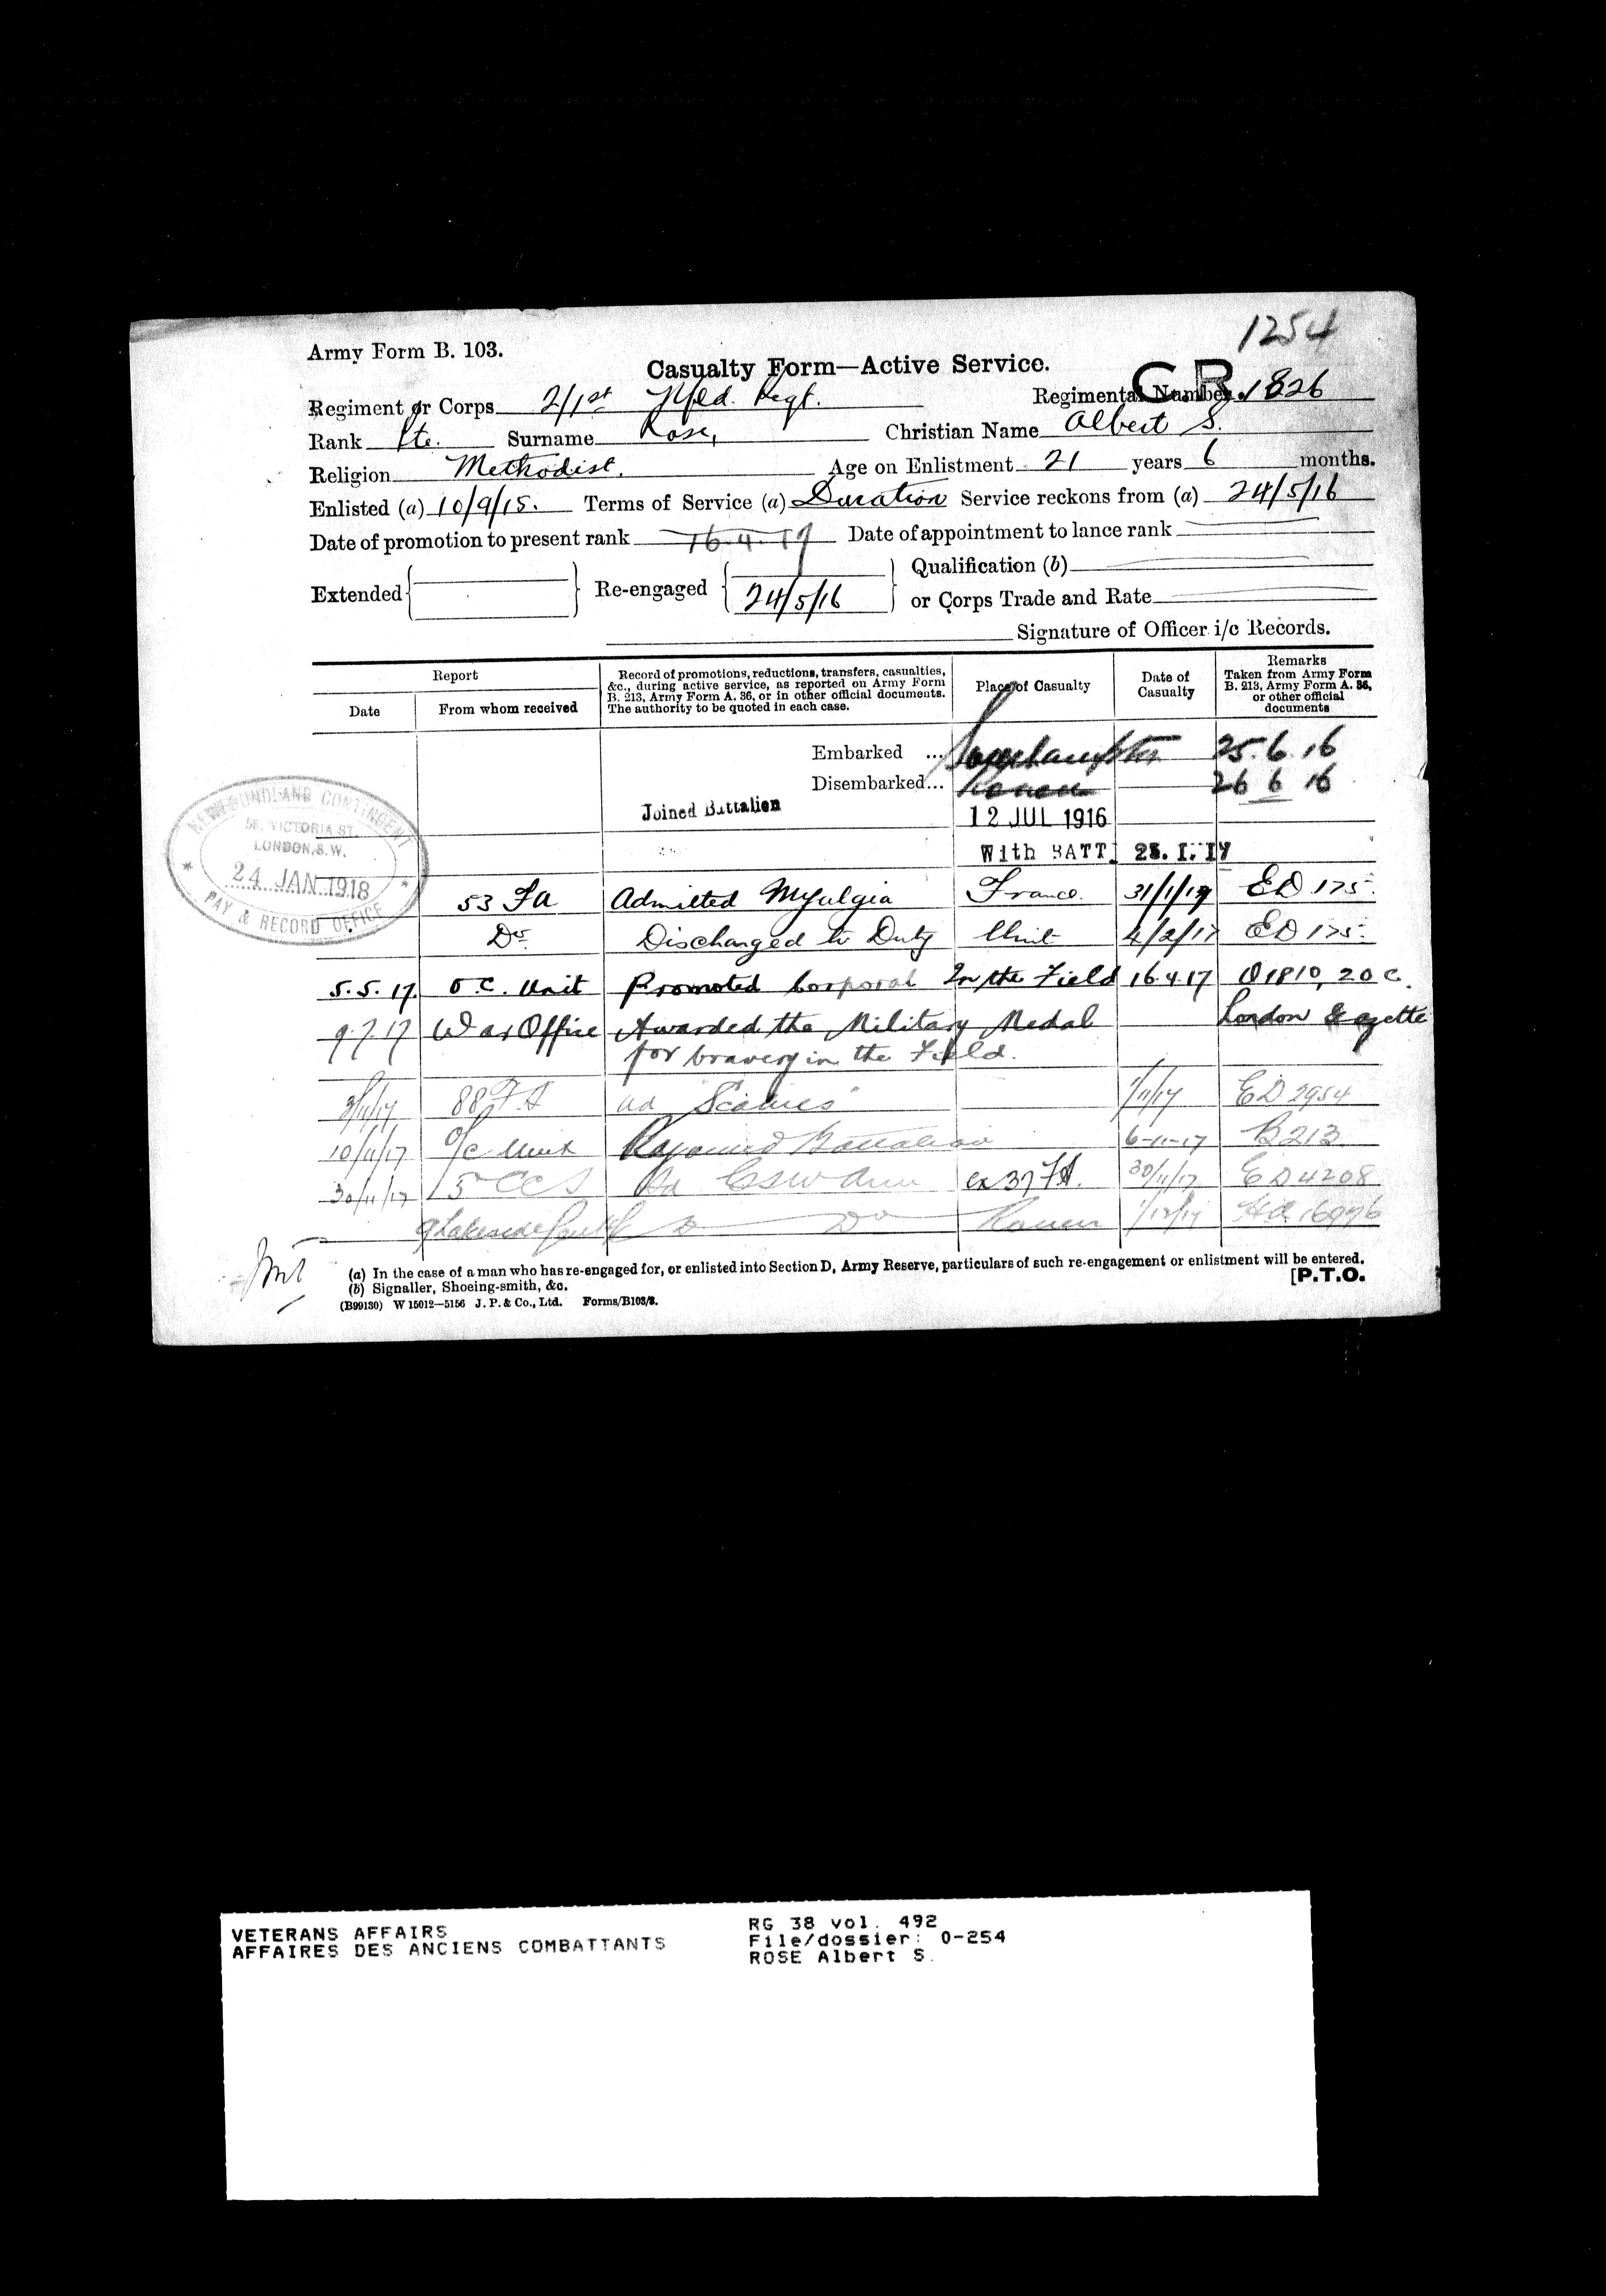 1254
Army Form B. 103.
Casualty Form—Active Service.
CR
Regiment or Corps 2/1st Nfld. Regt. Regimental Number 1826
Rank Pte. Surname Rose, Christian Name Albert S.
Religion Methodist. Age on Enlistment 21 years 6 months.
Enlisted (a) 10/9/15. Terms of Service (a) Duration Service reckons from (a) 24/5/16
Date of promotion to present rank 16.4.17 Date of appointment to lance rank
Extended Re-engaged 24/5/16 Qualification (b)
or Corps Trade and Rate
Signature of Officer i/c Records.
Report
Date From whom received
Record of promotions, reductions, transfers, casualties,
&c., during active service, as reported on Army Form
B. 213, Army Form A. 36, or in other official documents.
The authority to be quoted in each case.
Place of Casualty
Date of
Casualty
Remarks
Taken from Army Form
B. 213, Army Form A. 36,
or other official
documents
Embarked ... Southampton 25.6.16
Disembarked... Rouen 26 6 16
Joined Battalion 12 JUL 1916
With BATT. 25.1.17
53 FA Admitted Myalgia France. 31/1/17 ED 175.
Do Discharged to Duty Unit 4/2/17 ED 175.
5.5.17. O.C. Unit Promoted Corporal In the Field 16.4.17 O1810, 20 C.
9.7.17 War Office Awarded the Military Medal London Gazette
for bravery in the Field.
3/11/17 88 FA ad "Scabies" 1/11/17 ED 2954
10/11/17 O/C Unit Rejoined Battalion 6-11-17 B213
30/11/17 5 CCS Ad GSW Arm ex 37 FA. 30/11/17 ED 4208
Do Rouen 1/12/17
NEWFOUNDLAND CONTINGENT
58, VICTORIA ST.
LONDON, S.W.
24 JAN 1918
PAY & RECORD OFFICE
(a) In the case of a man who has re-engaged for, or enlisted into Section D, Army Reserve, particulars of such re-engagement or enlistment will be entered.
(b) Signaller, Shoeing-smith, &c.
[P.T.O.
(B99130) W 15012—5156 J. P. & Co., Ltd. Forms/B103/2.
VETERANS AFFAIRS
AFFAIRES DES ANCIENS COMBATTANTS
RG 38 vol. 492
File/dossier: 0-254
ROSE Albert S.